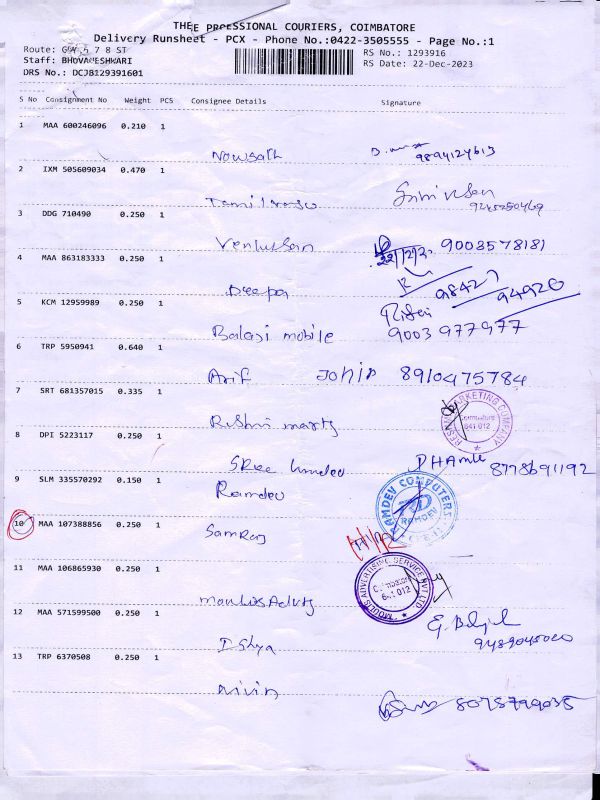 THE PROFESSIONAL COURIERS, COIMBATORE
Delivery Runsheet - PCX - Phone No.:0422-3505555 - Page No.:1
Route: 5 7 8 ST
RS No.: 1293916
Staff: BHOVANESHWARI
RS Date: 22-Dec-2023
DRS No.: DCJB129391601
S No Consignment No Weight PCS Consignee Details Signature
1 MAA 600246096 0.210 1
Nowsath 9894124613
2 IXM 505609034 0.470 1
3 DDG 710490 0.250 1
Venkatesan 22/12/2 9003578181
4 MAA 863183333 0.250 1
Deepa 98427 94920
5 KCM 12959989 0.250 1
Balaji mobile 9003977977
6 TRP 5950941 0.640 1
Arif 8910475784
7 SRT 681357015 0.335 1
MARKETING COMPANY
Coimbatore
641 012
8 DPI 5223117 0.250 1
Sree DHAMU 8778691192
9 SLM 335570292 0.150 1
Ramdev
RAMDEV COMPUTERS
RAMDEV
10 MAA 107388856 0.250 1
Samraj
11 MAA 106865930 0.250 1
Moulis Advtg
MOULIS ADVERTISING SERVICE PVT LTD
Coimbatore
641 012
12 MAA 571599500 0.250 1
13 TRP 6370508 0.250 1
Nivin 8075799035